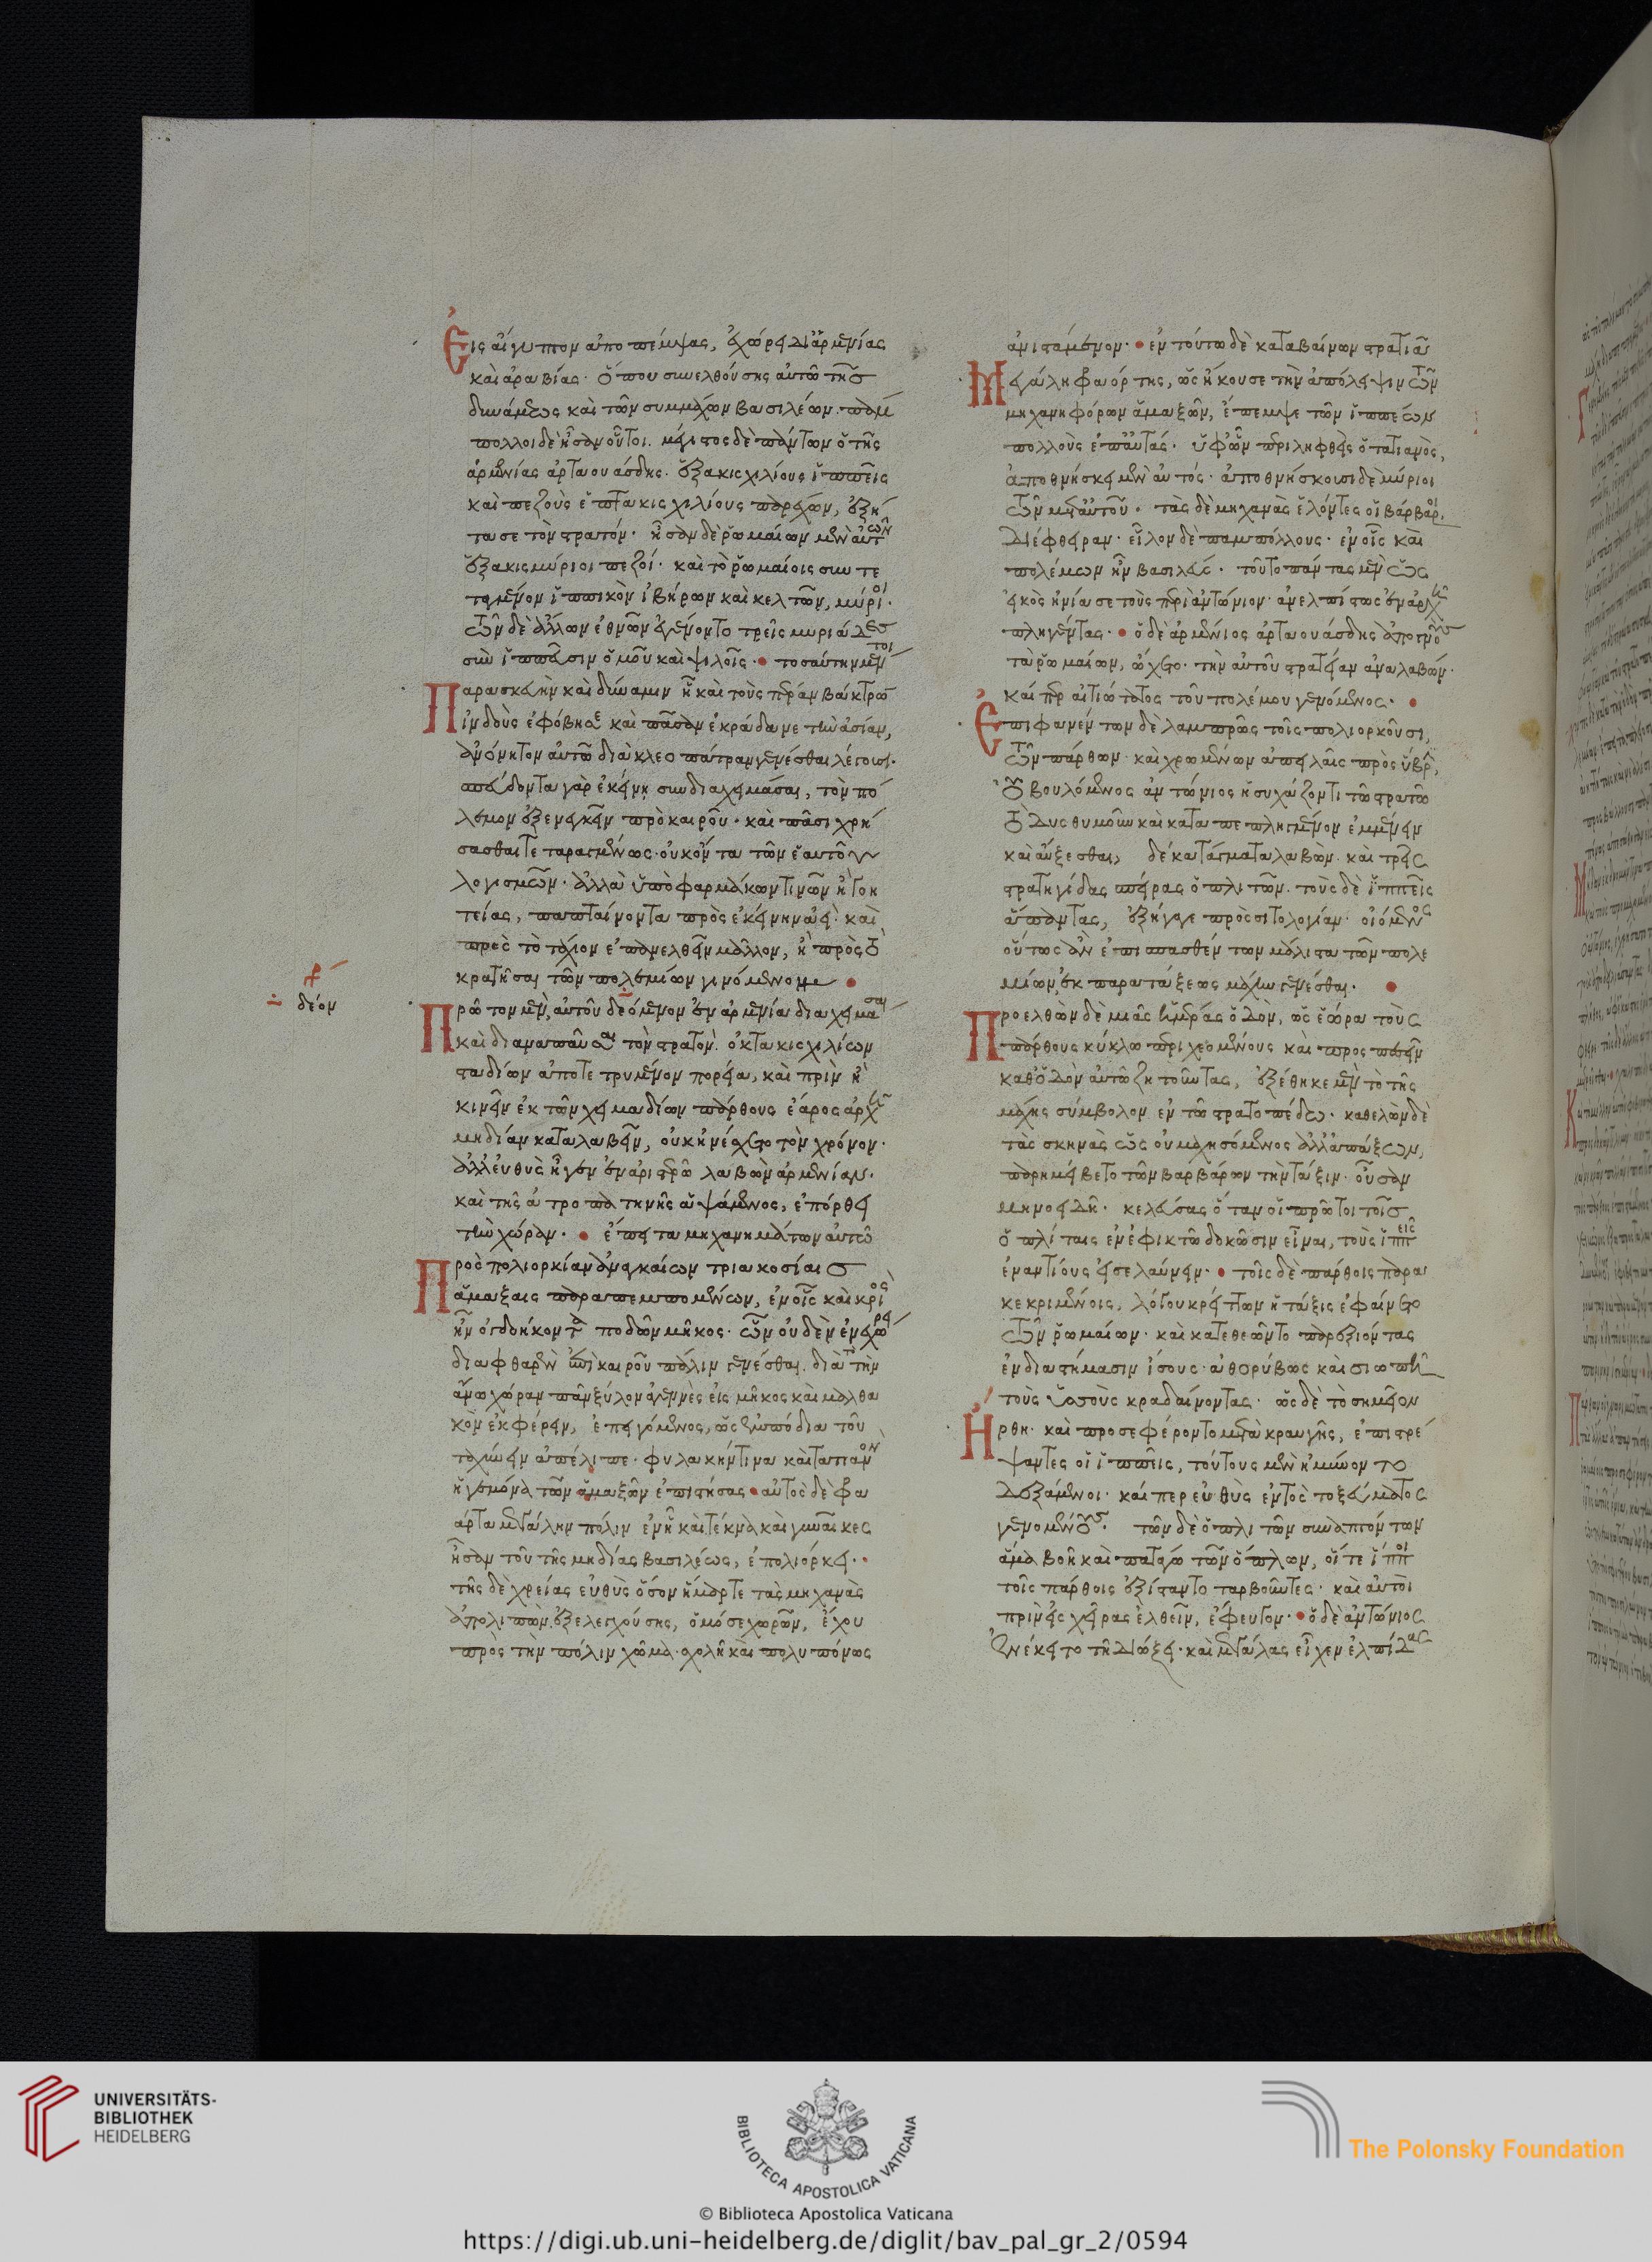 Εἰς αἴγυπτον ἀποπέμψας, ἐχώρει δι ἀρμενίας
καὶ ἀραβίας· ὅπου συνελθούσης αὐτῶ τῆς
δυνάμεως καὶ τῶν συμμάχων βασιλέων· πάμ
πολλοι δὲ ἦσαν οὗτοι. μέγιστος δὲ πάντων ὁ τῆς
ἀρμενίας ἀρταουάσδης· ἑξακισχιλίους ἱππεῖς
καὶ πεζοὺς ἑπτακισχιλίους παρέχων, ἐξή
τασε τὸν στρατόν· ἦσαν δὲ ῥωμαίων μὲν αὐτῶν
ἑξακισμύριοι πεζοί· καὶ τὸ ῥωμαίοις συντε
ταγμένον ἱππικὸν ἰβήρων καὶ κελτῶν, μύριοι·
τῶν δὲ ἄλλων ἐθνῶν ἐγένοντο τρεῖς μυριάδες
σὺν ἱππεῦσιν ὁμοῦ καὶ ψιλοῖς· τοσαύτην μέντοι
Παρασκευὴν καὶ δύναμιν ἣ καὶ τοὺς πέραν βάκτρων
ἰνδοὺς ἐφόβησε καὶ πᾶσαν ἐκράδανε τὴν ἀσίαν,
ἀνόνητον αὐτῶ διὰ κλεοπάτραν γενέσθαι λέγουσι·
σπεύδοντα γὰρ ἐκείνη συνδιαχειμάσαι, τὸν πό
λεμον ἐξενεγκεῖν πρὸ καιροῦ· καὶ πᾶσι χρή
σασθαι τεταραγμένως· οὐκ ὄντα τῶν ἑαυτοῦ
λογισμῶν· ἀλλὰ ὑπὸ φαρμάκων τινῶν ἢ γοη
τείας, παπταίνοντα πρὸς ἐκείνην ἀεί· καὶ
πρὸς τὸ τάχιον ἐπανελθεῖν μᾶλλον, ἢ πρὸς τὸ
κρατῆσαι τῶν πολεμίων γινόμενον
δέον
Πρῶτον μὲν αὐτοῦ δεόμενον ἐν ἀρμενία διαχειμάσαι
καὶ διαναπαῦσαι τὸν στρατὸν· ὀκτακισχιλίων
σταδίων ἀποτετρυμένον πορεία, καὶ πρὶν ἢ
κινεῖν ἐκ τῶν χειμαδίων πάρθους ἔαρος ἀρχῆ
μηδίαν καταλαβεῖν, οὐκ ἠνέσχετο τὸν χρόνον·
ἀλλ εὐθὺς ἦγεν ἐν ἀριστερᾶ λαβὼν ἀρμενίαν·
καὶ τῆς ἀτροπατηνῆς ἁψάμενος, ἐπόρθει
τὴν χώραν· ἔπειτα μηχανημάτων αὐτῶ
Πρὸς πολιορκίαν ἀναγκαίων τριακοσίαις
ἁμάξαις παραπεμπομένων, ἐν οἷς καὶ κριὸς
ἦν ὀγδοήκοντα ποδῶν μῆκος· ὧν οὐδὲν ἐνεχώρει
διαφθαρὲν ἐπὶ καιροῦ πάλιν γενέσθαι. διὰ τὸ τὴν
ἄνω χώραν πᾶν ξύλον ἀγεννὲς εἰς μῆκος καὶ μαλθα
κὸν ἐκφέρειν, ἐπειγόμενος, ὡς ἐμπόδια τοῦ
ταχύνειν ἀπέλιπε· φυλακήν τινα καὶ στατιανὸν
ἡγεμόνα τῶν ἁμαξῶν ἐπιστήσας· αὐτὸς δὲ φρα
άρτα μεγάλην πόλιν ἐν ἧ καὶ τέκνα καὶ γυναῖκες
ἦσαν τοῦ τῆς μηδίας βασιλέως, ἐπολιόρκει·
τῆς δὲ χρείας εὐθὺς ὅσον ἥμαρτε τὰς μηχανὰς
ἀπολιπὼν ἐξελεγχούσης, ὁμόσε χωρῶν, ἔχου
πρὸς τὴν πόλιν χῶμα· σχολῆ καὶ πολυπόνως
ἀνιστάμενον· ἐν τούτω δὲ καταβαίνων στρατιᾶ
Μεγάλη φραόρτης, ὡς ἤκουσε τὴν ἀπόλειψιν τῶν
μηχανηφόρων ἁμαξῶν, ἔπεμψε τῶν ἱππέων
πολλοὺς ἐπ αὐτάς· ὑφ ὧν περιληφθεὶς ὁ στατιανὸς,
ἀποθνήσκει μὲν αὐτός· ἀποθνήσκουσι δὲ μύριοι
τῶν μετ αὐτοῦ· τὰς δὲ μηχανὰς ἑλόντες οἱ βάρβαροι
διέφθειραν· εἷλον δὲ παμπόλλους· ἐν οἷς καὶ
πολέμων ἦν βασιλεύς· τοῦτο πάντας μὲν ὡς
εἰκὸς ἠνίασε τοὺς περὶ ἀντώνιον· ἀνελπίστως ἐν ἀρχῆ
πληγέντας· ὁ δὲ ἀρμένιος ἀρταουάσδης ἀπογνοὺς
τὰ ῥωμαίων, ὤχετο· τὴν αὐτοῦ στρατείαν ἀναλαβών·
καίπερ αἰτιώτατος τοῦ πολέμου γενόμενος·
Ἐπιφανέντων δὲ λαμπρῶς τοῖς πολιορκοῦσι,
τῶν πάρθων· καὶ χρωμένων ἀπειλαῖς πρὸς ὕβριν,
οὐ βουλόμενος ἀντώνιος ἡσυχάζοντι τῶ στρατῶ
τὸ δυσθυμοῦν καὶ καταπεπληγμένον ἐμμένειν
καὶ αὔξεσθαι, δέκα τάγματα λαβὼν· καὶ τρεῖς
στρατηγίδας σπείρας ὁπλιτῶν· τοὺς δὲ ἱππεῖς
ἅπαντας, ἐξήγαγε πρὸς σιτολογίαν· οἰόμενος
οὕτως ἂν ἐπισπασθέντων μάλιστα τῶν πολε
μίων ἐκ παρατάξεως μάχην γενέσθαι·
Προελθὼν δὲ μιᾶς ἡμέρας ὁδὸν, ὡς ἑώρα τοὺς
πάρθους κύκλω περιχεομένους καὶ προσπεσεῖν
καθ ὁδὸν αὐτῶ ζητοῦντας, ἐξέθηκε μὲν τὸ τῆς
μάχης σύμβολον ἐν τῶ στρατοπέδω· καθελὼν δὲ
τὰς σκηνὰς ὡς οὐ μαχησόμενος ἀλλ ἀπάξων,
παρημείβετο τῶν βαρβάρων τὴν τάξιν· οὖσαν
μηνοειδῆ· κελεύσας ὅταν οἱ πρῶτοι τοῖς
ὁπλίταις ἐν ἐφικτῶ δοκῶσιν εἶναι, τοὺς ἱππεῖς
ἐναντίους εἰσελαύνειν· τοῖς δὲ πάρθοις παρα
κεκριμένοις, λόγου κρείττων ἡ τάξις ἐφαίνετο
τῶν ῥωμαίων· καὶ κατεθεῶντο παρεξιόντας
ἐν διαστήμασιν ἴσοις· ἀθορύβως καὶ σιωπῆ
τοὺς ὑσσοὺς κραδαίνοντας· ὡς δὲ τὸ σημεῖον
Ἤρθη· καὶ προσεφέροντο μετὰ κραυγῆς, ἐπιστρέ
ψαντες οἱ ἱππεῖς, τούτους μὲν ἠμύνοντο
δεξάμενοι· καίπερ εὐθὺς ἐντὸς τοξεύματος
γενομένους· τῶν δὲ ὁπλιτῶν συναπτόντων
ἅμα βοῆ καὶ πατάγω τῶν ὅπλων, οἵ τε ἵπποι
τοῖς πάρθοις ἐξίσταντο ταρβοῦντες· καὶ αὐτοὶ
πρὶν εἰς χεῖρας ἐλθεῖν, ἔφευγον· ὁ δὲ ἀντώνιος
ἐνέκειτο τῆ διώξει· καὶ μεγάλας εἶχεν ἐλπίδας
UNIVERSITÄTS-
BIBLIOTHEK
HEIDELBERG
BIBLIOTECA APOSTOLICA VATICANA
© Biblioteca Apostolica Vaticana
The Polonsky Foundation
https://digi.ub.uni-heidelberg.de/diglit/bav_pal_gr_2/0594